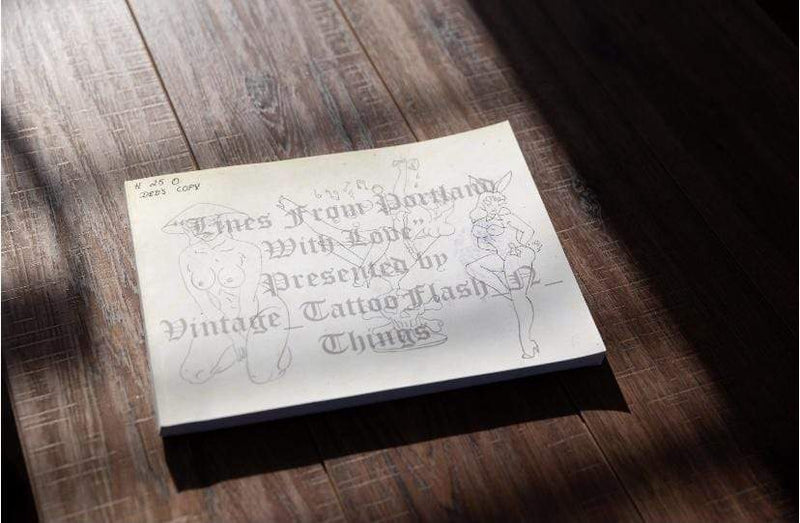 N 25 O
DEB'S COPY
"Lines From Portland
With Love"
Presented by
Vintage_Tattoo Flash_N_
Things